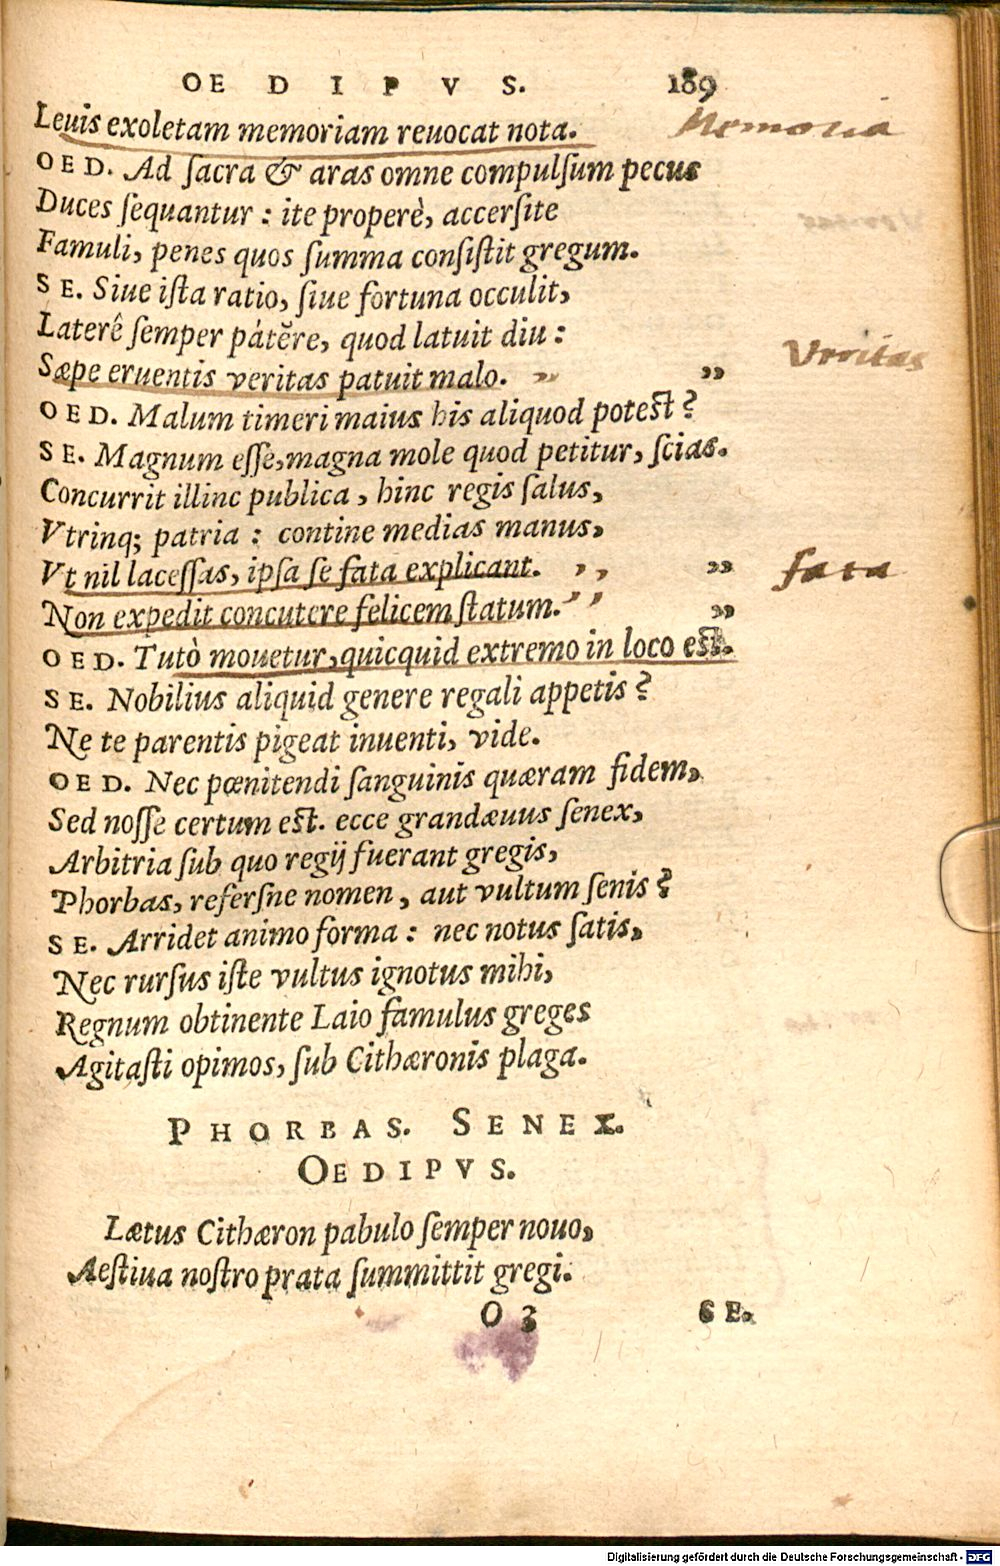 OE D I P V S. 189
Leuis exoletam memoriam reuocat nota. Memoria
OED. Ad ſacra & aras omne compulſum pecus
Duces ſequantur : ite properè, accerſite
Famuli, penes quos ſumma conſiſtit gregum.
SE. Siue iſta ratio, ſiue fortuna occulit,
Laterê ſemper pátĕre, quod latuit diu :
Sæpe eruentis veritas patuit malo. „ „ Veritas
OED. Malum timeri maius his aliquod poteſt?
SE. Magnum eſſe, magna mole quod petitur, ſcias.
Concurrit illinc publica, hinc regis ſalus,
Vtrinq; patria : contine medias manus,
Vt nil laceſſas, ipſa ſe fata explicant. ,, „ fata
Non expedit concutere felicem ſtatum. ’’ „
OED. Tutò mouetur, quicquid extremo in loco eſt.
SE. Nobilius aliquid genere regali appetis?
Ne te parentis pigeat inuenti, vide.
OED. Nec pœnitendi ſanguinis quæram fidem,
Sed noſſe certum eſt. ecce grandæuus ſenex,
Arbitria ſub quo regij fuerant gregis,
Phorbas, referſne nomen, aut vultum ſenis?
SE. Arridet animo forma : nec notus ſatis,
Nec rurſus iſte vultus ignotus mihi,
Regnum obtinente Laio famulus greges
Agitaſti opimos, ſub Cithæronis plaga.
PHORBAS. SENEX.
OEDIPVS.
Lætus Cithæron pabulo ſemper nouo,
Aeſtiua noſtro prata ſummittit gregi.
O 3 SE.
Digitalisierung gefördert durch die Deutsche Forschungsgemeinschaft - DFG